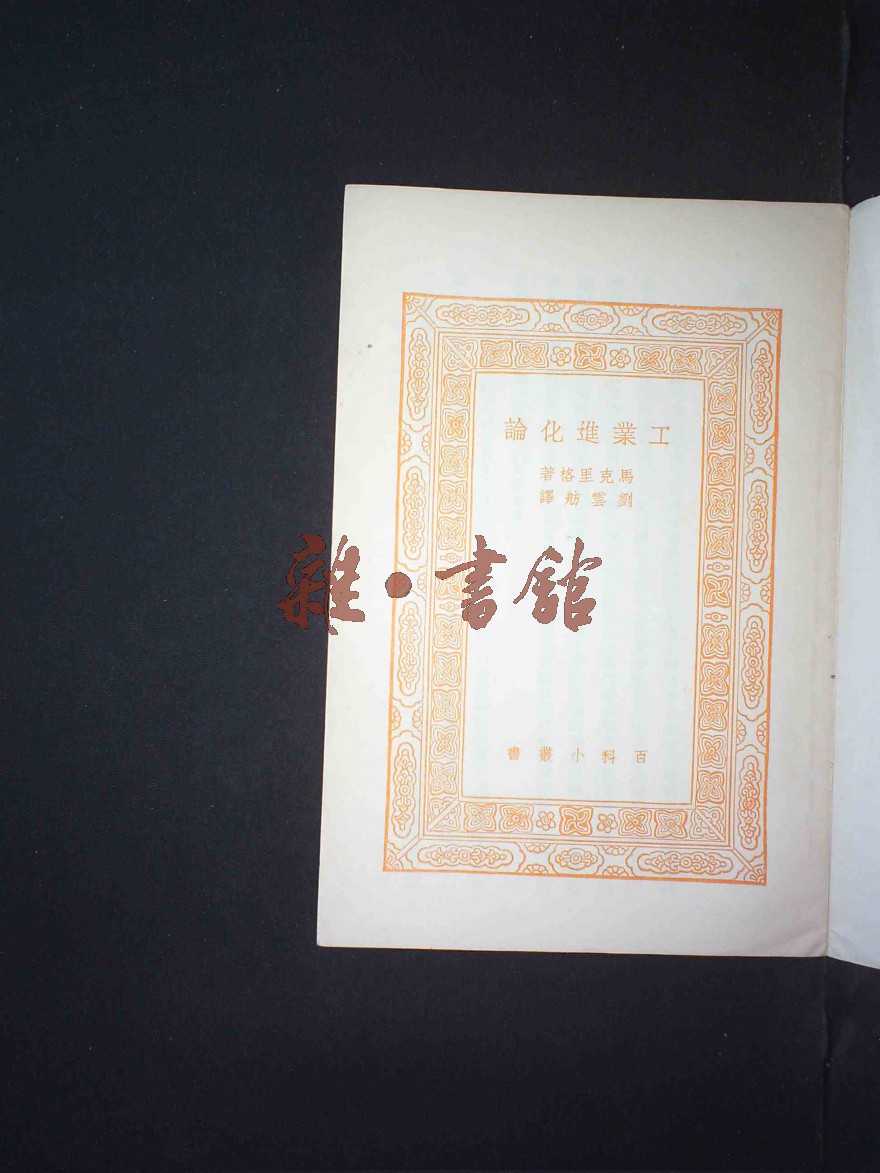 工業進化論
馬克里格著
劉雲舫譯
雜·書館
百科小叢書